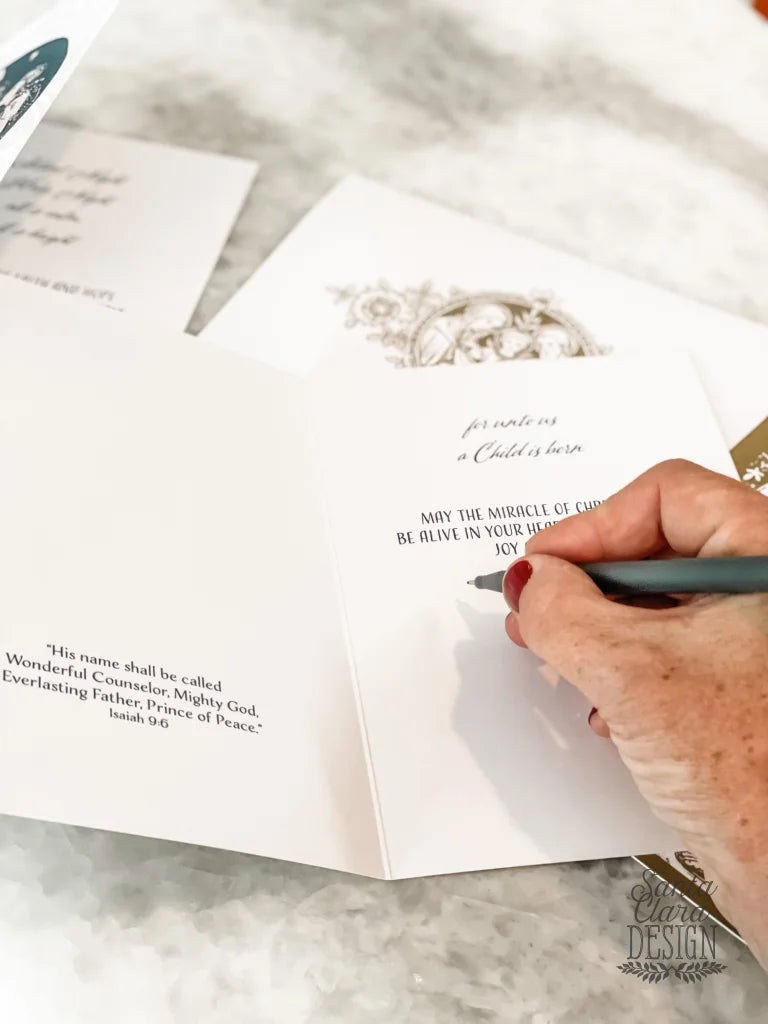 for unto us
a Child is born
MAY THE MIRACLE OF
BE ALIVE IN YOUR
JOY
"His name shall be called
Wonderful Counselor, Mighty God,
Everlasting Father, Prince of Peace."
Isaiah 9:6
AND HOPE
Santa
Clara
DESIGN